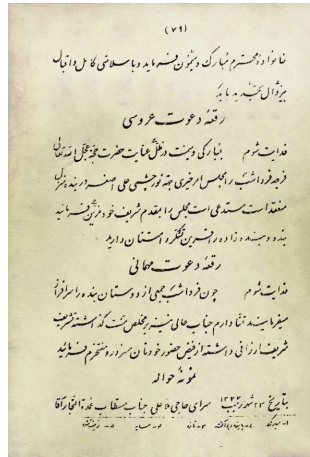 (۷۹)
خانواده محترم مبارک و میمون فرماید و با سلامتی کامل و اقبال
بیزوال
رقعه دعوت عروسی
فدایت شوم بمبارکی و میمنت در ظل عنایت حضرت حجة عجل الله تعالی
فرجه فردا شب را مجلس امر خیری جهة نور چشمی علی صغر در بنده منزل
منعقد است مستدعی است مجلس را بقدوم شریف خود مزین فرمائید
بنده و بنده زاده را قرین تشکر و امتنان دارید
رقعه دعوت مهمانی
فدایت شوم چون فردا شب جمعی از دوستان بنده را سرافراز
میفرمایند تمنا دارم جناب عالی نیز بر مخلص منت گذاشته تشریف
شریف ارزانی داشته از فیض حضور خودتان مسرور و مفتخرم فرمائید
نمونه حواله
بتاریخ ۲۳ شهر رجب ۱۳۳۲ سرای حاجی علی جناب مستطاب عمدة التجار آقا